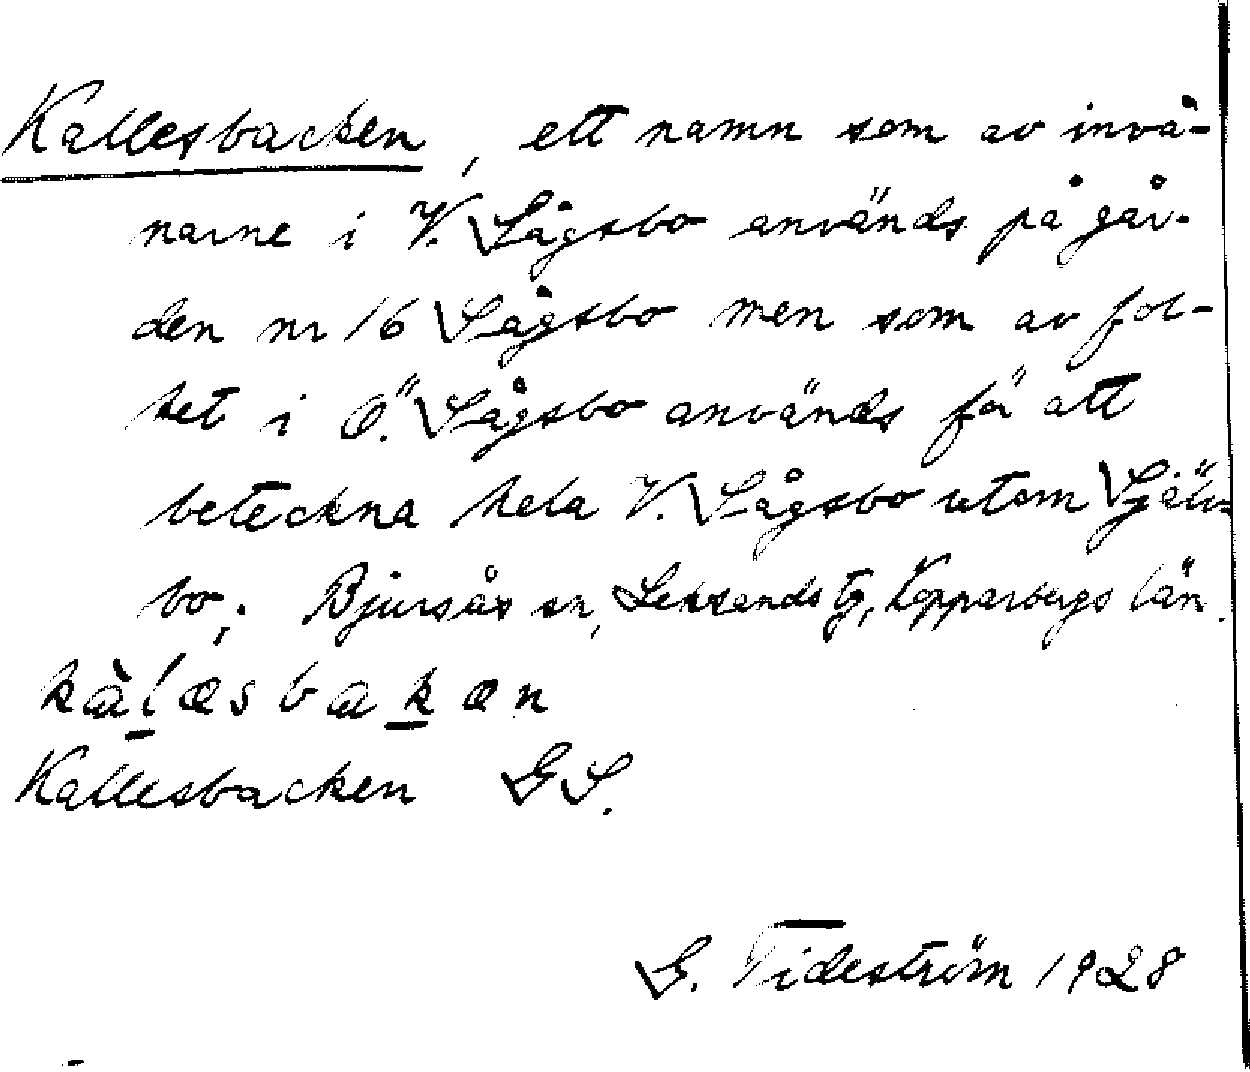 Kallesbacken, ett namn som av invå-
narne i V. Sågsbo används på går-
den nr 16 Sågsbo men som av fol-
ket i Ö. Sågsbo används för att
beteckna hela V. Sågsbo utom Själv-
bo; Bjursås sn, Leksands tg, Kopparbergs län.
kàlæsbakæn
Kallesbacken GS.
G. Tideström 1928